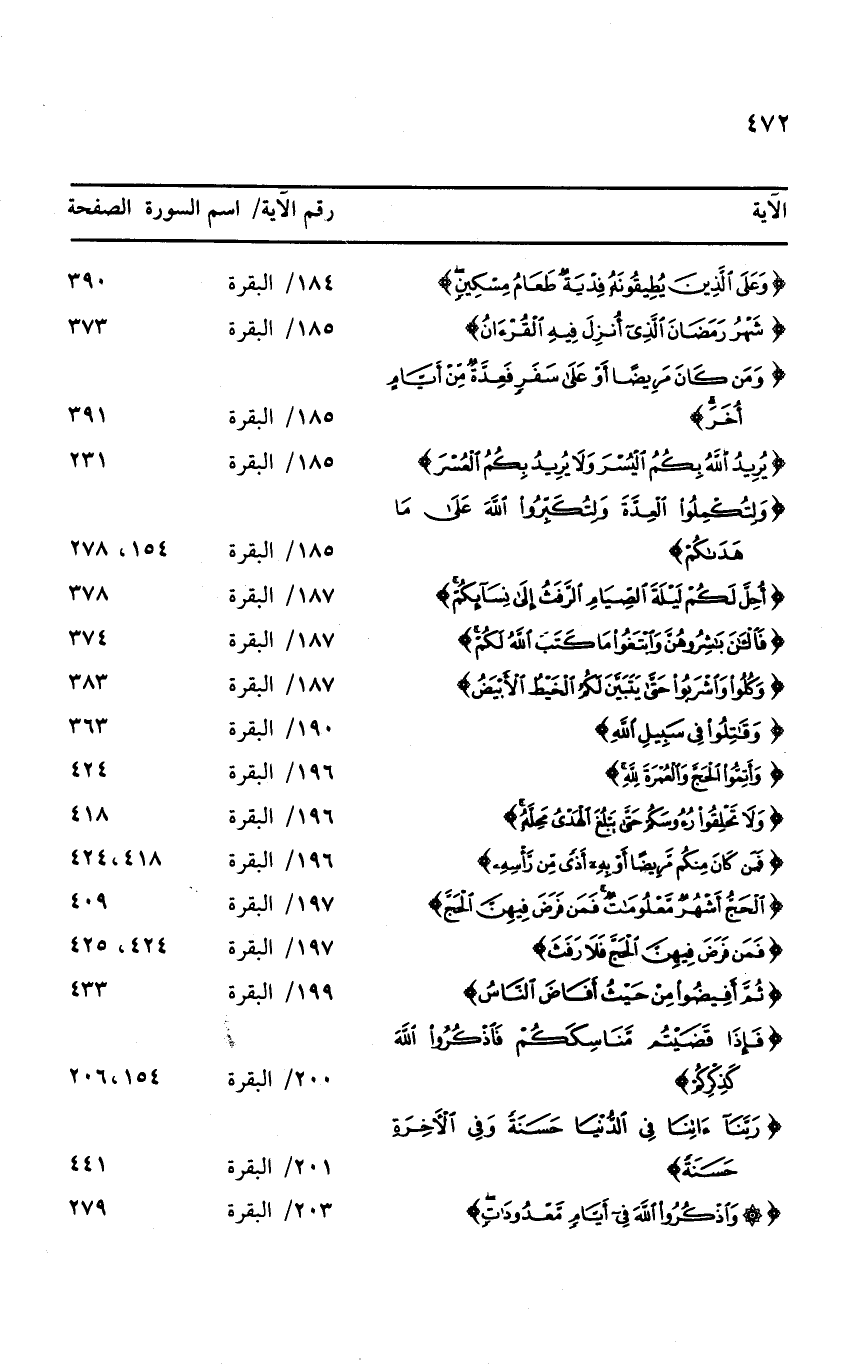 ٤٧٢
الآية رقم الآية/ اسم السورة الصفحة
﴿ وَعَلَى ٱلَّذِينَ يُطِيقُونَهُۥ فِدْيَةٌ طَعَامُ مِسْكِينٍۖ ﴾ ١٨٤/ البقرة ٣٩٠
﴿ شَهْرُ رَمَضَانَ ٱلَّذِىٓ أُنزِلَ فِيهِ ٱلْقُرْءَانُ ﴾ ١٨٥/ البقرة ٣٧٣
﴿ وَمَن كَانَ مَرِيضًا أَوْ عَلَىٰ سَفَرٍ فَعِدَّةٌ مِّنْ أَيَّامٍ
أُخَرَۗ ﴾ ١٨٥/ البقرة ٣٩١
﴿ يُرِيدُ ٱللَّهُ بِكُمُ ٱلْيُسْرَ وَلَا يُرِيدُ بِكُمُ ٱلْعُسْرَ ﴾ ١٨٥/ البقرة ٢٣١
﴿ وَلِتُكْمِلُوا۟ ٱلْعِدَّةَ وَلِتُكَبِّرُوا۟ ٱللَّهَ عَلَىٰ مَا
هَدَىٰكُمْ ﴾ ١٨٥/ البقرة ١٥٤، ٢٧٨
﴿ أُحِلَّ لَكُمْ لَيْلَةَ ٱلصِّيَامِ ٱلرَّفَثُ إِلَىٰ نِسَآئِكُمْۚ ﴾ ١٨٧/ البقرة ٣٧٨
﴿ فَٱلْـَٰٔنَ بَـٰشِرُوهُنَّ وَٱبْتَغُوا۟ مَا كَتَبَ ٱللَّهُ لَكُمْۚ ﴾ ١٨٧/ البقرة ٣٧٤
﴿ وَكُلُوا۟ وَٱشْرَبُوا۟ حَتَّىٰ يَتَبَيَّنَ لَكُمُ ٱلْخَيْطُ ٱلْأَبْيَضُ ﴾ ١٨٧/ البقرة ٣٨٣
﴿ وَقَـٰتِلُوا۟ فِى سَبِيلِ ٱللَّهِ ﴾ ١٩٠/ البقرة ٣٦٣
﴿ وَأَتِمُّوا۟ ٱلْحَجَّ وَٱلْعُمْرَةَ لِلَّهِۚ ﴾ ١٩٦/ البقرة ٤٢٤
﴿ وَلَا تَحْلِقُوا۟ رُءُوسَكُمْ حَتَّىٰ يَبْلُغَ ٱلْهَدْىُ مَحِلَّهُۥۚ ﴾ ١٩٦/ البقرة ٤١٨
﴿ فَمَن كَانَ مِنكُم مَّرِيضًا أَوْ بِهِۦٓ أَذًى مِّن رَّأْسِهِۦ ﴾ ١٩٦/ البقرة ٤١٨، ٤٢٤
﴿ ٱلْحَجُّ أَشْهُرٌ مَّعْلُومَـٰتٌۚ فَمَن فَرَضَ فِيهِنَّ ٱلْحَجَّ ﴾ ١٩٧/ البقرة ٤٠٩
﴿ فَمَن فَرَضَ فِيهِنَّ ٱلْحَجَّ فَلَا رَفَثَ ﴾ ١٩٧/ البقرة ٤٢٤، ٤٢٥
﴿ ثُمَّ أَفِيضُوا۟ مِنْ حَيْثُ أَفَاضَ ٱلنَّاسُ ﴾ ١٩٩/ البقرة ٤٣٣
﴿ فَإِذَا قَضَيْتُم مَّنَـٰسِكَكُمْ فَٱذْكُرُوا۟ ٱللَّهَ
كَذِكْرِكُمْ ﴾ ٢٠٠/ البقرة ١٥٤، ٢٠٦
﴿ رَبَّنَآ ءَاتِنَا فِى ٱلدُّنْيَا حَسَنَةً وَفِى ٱلْـَٔاخِرَةِ
حَسَنَةً ﴾ ٢٠١/ البقرة ٤٤١
﴿ ۞ وَٱذْكُرُوا۟ ٱللَّهَ فِىٓ أَيَّامٍ مَّعْدُودَٰتٍۚ ﴾ ٢٠٣/ البقرة ٢٧٩